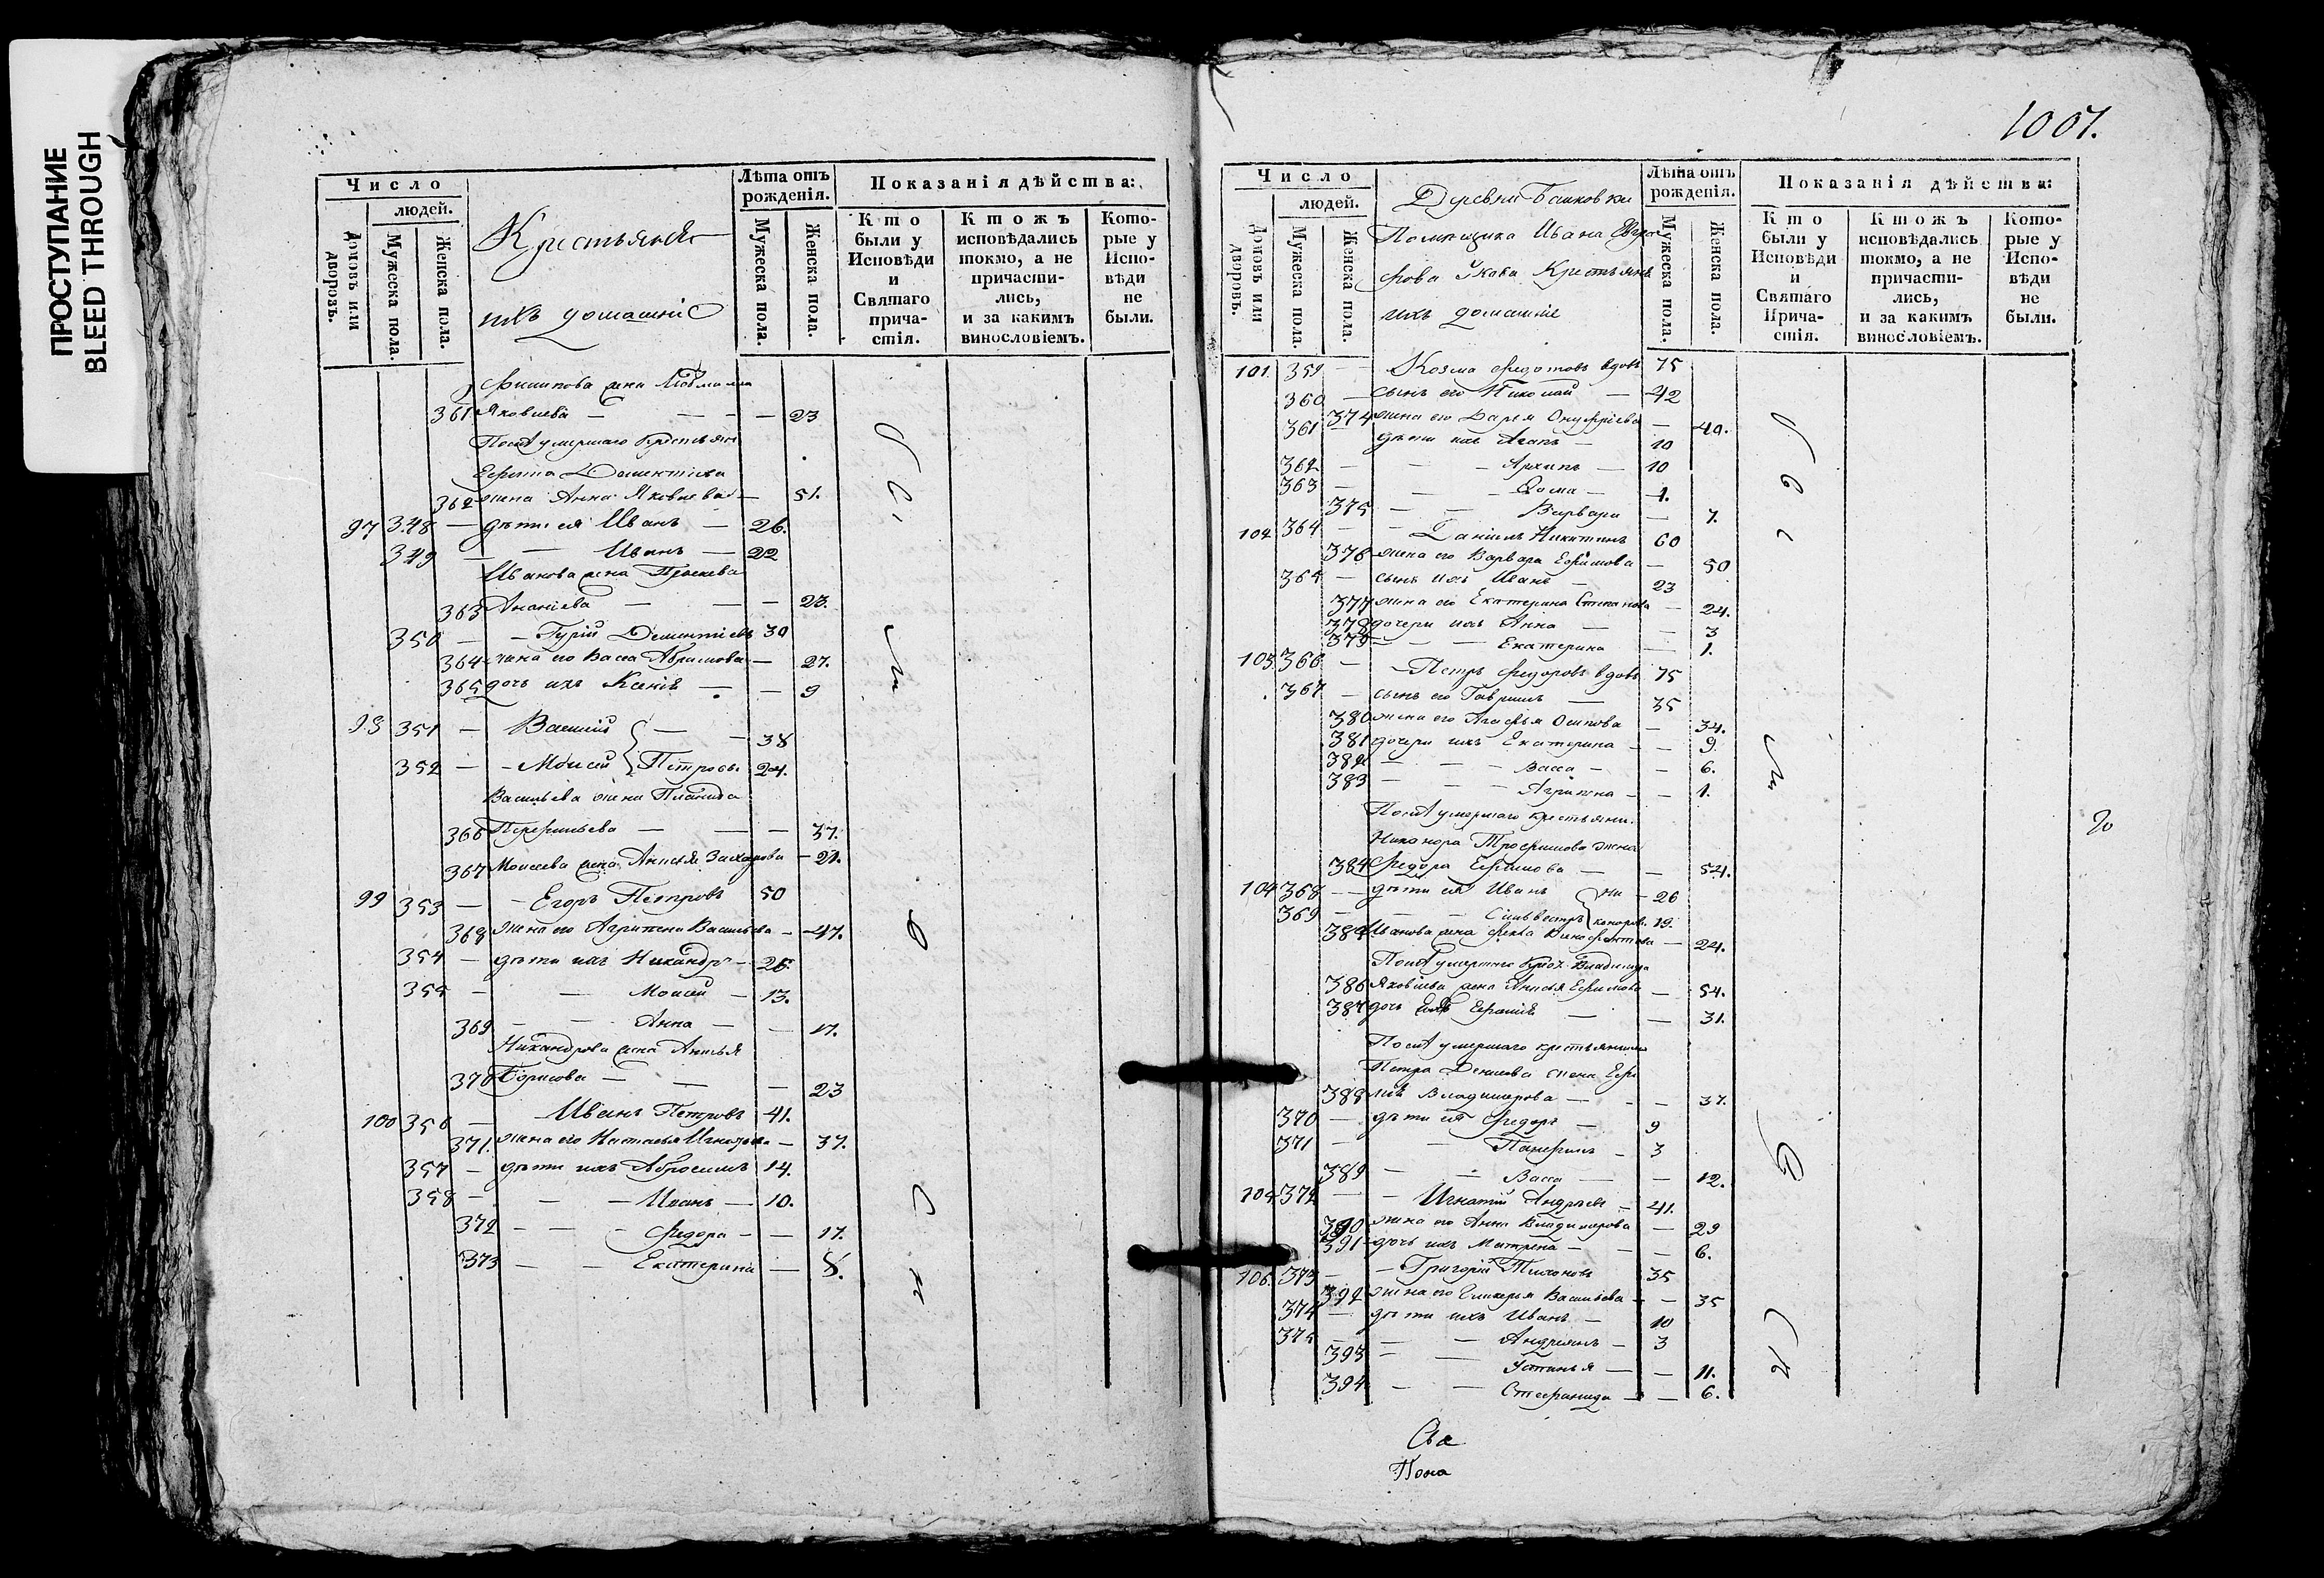 ПРОСТУПАНИЕ
BLEED THROUGH
Число
людей.
Домовъ или дворовъ.
Мужеска пола.
Женска пола.
Крестьяне
ихъ домашніе
Лѣта отъ рожденія.
Мужеска пола.
Женска пола.
Показанія дѣйства:
Кто были у Исповѣди и Святаго причастія.
Ктожъ исповѣдались токмо, а не причастились, и за какимъ винословіемъ.
Которые у Исповѣди не были.
жена
361 Яковлева — 23
Послѣ умершаго крестьян
Дементіева
362 жена Анна Яковлева — 51.
97 348 — дѣти ея Иванъ — 26.
349 — Иванъ — 22
Иванова жена
363 Ананіева — 23.
350 — Гурій Дементіевъ 30
364 жена его Васса Абрамова — 27.
365 дочь ихъ Ксенія — 9
98 351 — Василій — 38
352 — Моисей Петровы 24.
Васильева жена
366 Перфильева — 37.
367 Моисеева жена Анисья Захарова — 21.
99 353 — Егоръ Петровъ 50
368 жена его Агрипена Васильева — 47.
354 — дѣти ихъ Никандръ — 25
355 — Моисей — 13.
369 — Анна — 17.
Никандрова жена Анисья
370 Борисова — 23
100 356 — Иванъ Петровъ 41.
371. жена его Настасья Игнатьева — 37.
357 — дѣти ихъ Абросимъ 14.
358 — Иванъ — 10.
372 — Федора — 17.
373 — Екатерина — 8.
1007.
Число
людей.
Домовъ или дворовъ.
Мужеска пола.
Женска пола.
Деревни Башковки
Помѣщика Ивана
Крестьяне
ихъ домашніе
Лѣта отъ рожденія.
Мужеска пола.
Женска пола.
Показанія дѣйства:
Кто были у Исповѣди и Святаго Причастія.
Ктожъ исповѣдались токмо, а не причастились, и за какимъ винословіемъ.
Которые у Исповѣди не были.
101 359 — Козма Федотовъ вдовъ 75
360 — сынъ его Николай — 42
374 жена его Дарья Онуфріева — 40.
361 дѣти ихъ Агапъ — 10
362 — Архипъ — 10
363 — Фома — 1.
375 — Варвара — 7.
102 364 — Даніилъ Никитинъ 60
376 жена его Варвара Ефимова — 50
365 — сынъ ихъ Иванъ — 23
377 жена его Екатерина Степанова — 24.
378 дочери ихъ Анна — 3
379 — Екатерина — 1.
103 366 — Петръ Федоровъ вдовъ 75
367 — сынъ его Гаврилъ — 35
380 жена его Агафья Осипова — 34.
381 дочери ихъ Екатерина — 9.
382 — Васса — 6.
383 — Агрипена — 1.
Послѣ умершаго крестьяни.
Никонора Трофимова жена
384 Федора Ефимова — 54.
104 368 — дѣти ея Иванъ Ни — 26
369 — Сильвестръ каноров. 19.
Иванова жена Фекла — 24.
Послѣ умершаго Владимира
386 Яковлева жена Анисья Ефимова — 54.
387 дочь 31.
Послѣ умершаго крестьянина
Петра Денисова жена Ефи
388 мія Владимирова — 37.
370 — дѣти ея Федоръ — 9
371 — Панфилъ — 3
389 — Васса — 12.
105 372 — Игнатій Андреевъ — 41.
390 жена его Анна Владимирова — 29
391 дочь ихъ Матрена — 6.
106. 373 — Григорій Тихоновъ 35
392 жена его Гликерья Васильева — 35
374 — дѣти ихъ Иванъ — 10
375 — Андреянъ — 3
393 — Устинья — 11.
394 — Стефанида — 6.